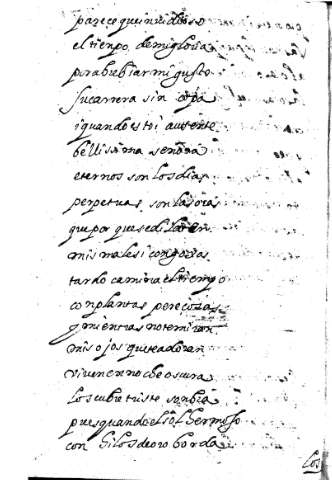 pareçe que inuidioso
el tienpo, de mi gloria
por abrebiar mi gusto
su carrera sin
i quando estoi ausente
bellissima señora
eternos son los dias
perpetuas son las oras
que porque se dilaten
mis males i congojas
tardo camina el tiempo
con plantas pereçosas
y mientras no te miran
mis ojos que te adoran
viuen en noche oscura
los cubre triste sonbra
pues quando el sol hermoso
con hilos de oro borda
Los